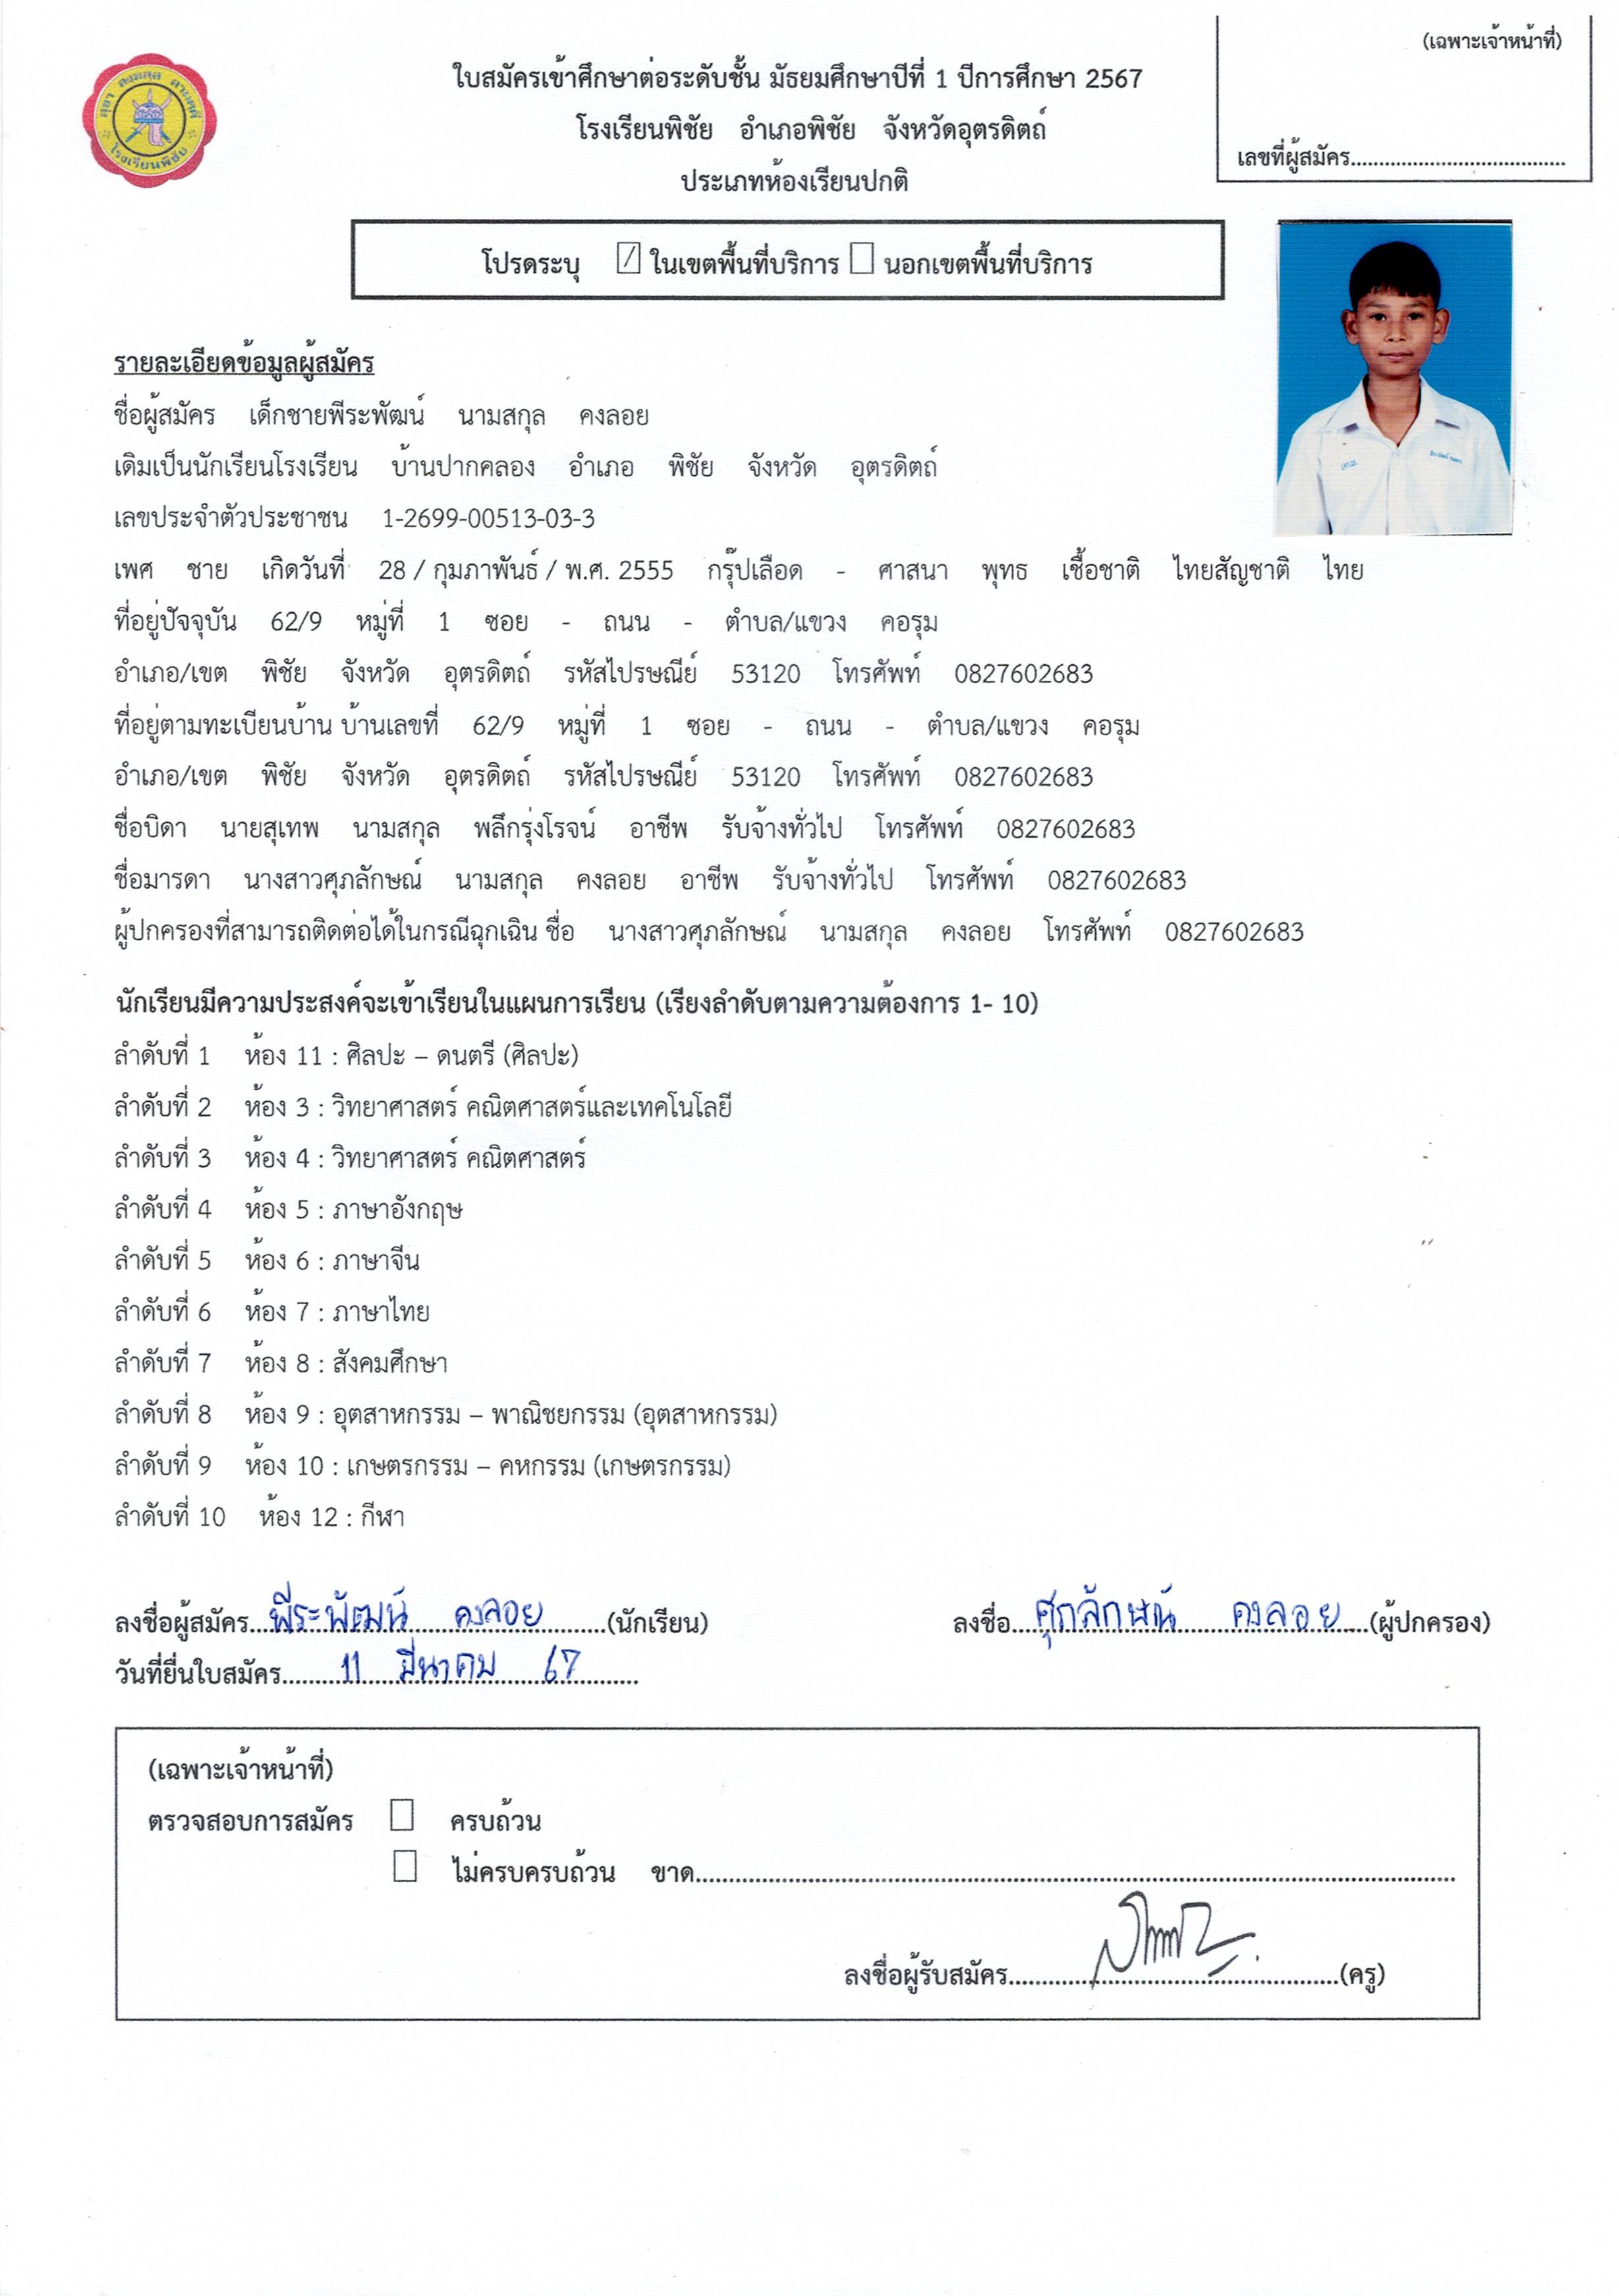 (เฉพาะเจ้าหน้าที่)
ใบสมัครเข้าศึกษาต่อระดับชั้น มัธยมศึกษาปีที่ 1 ปีการศึกษา 2567
โรงเรียนพิชัย อำเภอพิชัย จังหวัดอุตรดิตถ์
ประเภทห้องเรียนปกติ
เลขที่ผู้สมัคร......................................
โรงเรียนพิชัย
โปรดระบุ ☑ ในเขตพื้นที่บริการ ☐ นอกเขตพื้นที่บริการ
รายละเอียดข้อมูลผู้สมัคร
ชื่อผู้สมัคร เด็กชายพีระพัฒน์ นามสกุล คงลอย
เดิมเป็นนักเรียนโรงเรียน บ้านปากคลอง อำเภอ พิชัย จังหวัด อุตรดิตถ์
เลขประจำตัวประชาชน 1-2699-00513-03-3
เพศ ชาย เกิดวันที่ 28 / กุมภาพันธ์ / พ.ศ. 2555 กรุ๊ปเลือด - ศาสนา พุทธ เชื้อชาติ ไทยสัญชาติ ไทย
ที่อยู่ปัจจุบัน 62/9 หมู่ที่ 1 ซอย - ถนน - ตำบล/แขวง คอรุม
อำเภอ/เขต พิชัย จังหวัด อุตรดิตถ์ รหัสไปรษณีย์ 53120 โทรศัพท์ 0827602683
ที่อยู่ตามทะเบียนบ้าน บ้านเลขที่ 62/9 หมู่ที่ 1 ซอย - ถนน - ตำบล/แขวง คอรุม
อำเภอ/เขต พิชัย จังหวัด อุตรดิตถ์ รหัสไปรษณีย์ 53120 โทรศัพท์ 0827602683
ชื่อบิดา นายสุเทพ นามสกุล พลึกรุ่งโรจน์ อาชีพ รับจ้างทั่วไป โทรศัพท์ 0827602683
ชื่อมารดา นางสาวศุภลักษณ์ นามสกุล คงลอย อาชีพ รับจ้างทั่วไป โทรศัพท์ 0827602683
ผู้ปกครองที่สามารถติดต่อได้ในกรณีฉุกเฉิน ชื่อ นางสาวศุภลักษณ์ นามสกุล คงลอย โทรศัพท์ 0827602683
นักเรียนมีความประสงค์จะเข้าเรียนในแผนการเรียน (เรียงลำดับตามความต้องการ 1- 10)
ลำดับที่ 1 ห้อง 11 : ศิลปะ – ดนตรี (ศิลปะ)
ลำดับที่ 2 ห้อง 3 : วิทยาศาสตร์ คณิตศาสตร์และเทคโนโลยี
ลำดับที่ 3 ห้อง 4 : วิทยาศาสตร์ คณิตศาสตร์
ลำดับที่ 4 ห้อง 5 : ภาษาอังกฤษ
ลำดับที่ 5 ห้อง 6 : ภาษาจีน
ลำดับที่ 6 ห้อง 7 : ภาษาไทย
ลำดับที่ 7 ห้อง 8 : สังคมศึกษา
ลำดับที่ 8 ห้อง 9 : อุตสาหกรรม – พาณิชยกรรม (อุตสาหกรรม)
ลำดับที่ 9 ห้อง 10 : เกษตรกรรม – คหกรรม (เกษตรกรรม)
ลำดับที่ 10 ห้อง 12 : กีฬา
ลงชื่อผู้สมัคร...พีระพัฒน์ คงลอย...(นักเรียน) ลงชื่อ...ศุภลักษณ์ คงลอย...(ผู้ปกครอง)
วันที่ยื่นใบสมัคร...11 มีนาคม 67...
(เฉพาะเจ้าหน้าที่)
ตรวจสอบการสมัคร ☐ ครบถ้วน
☐ ไม่ครบครบถ้วน ขาด......................................
ลงชื่อผู้รับสมัคร......................................(ครู)